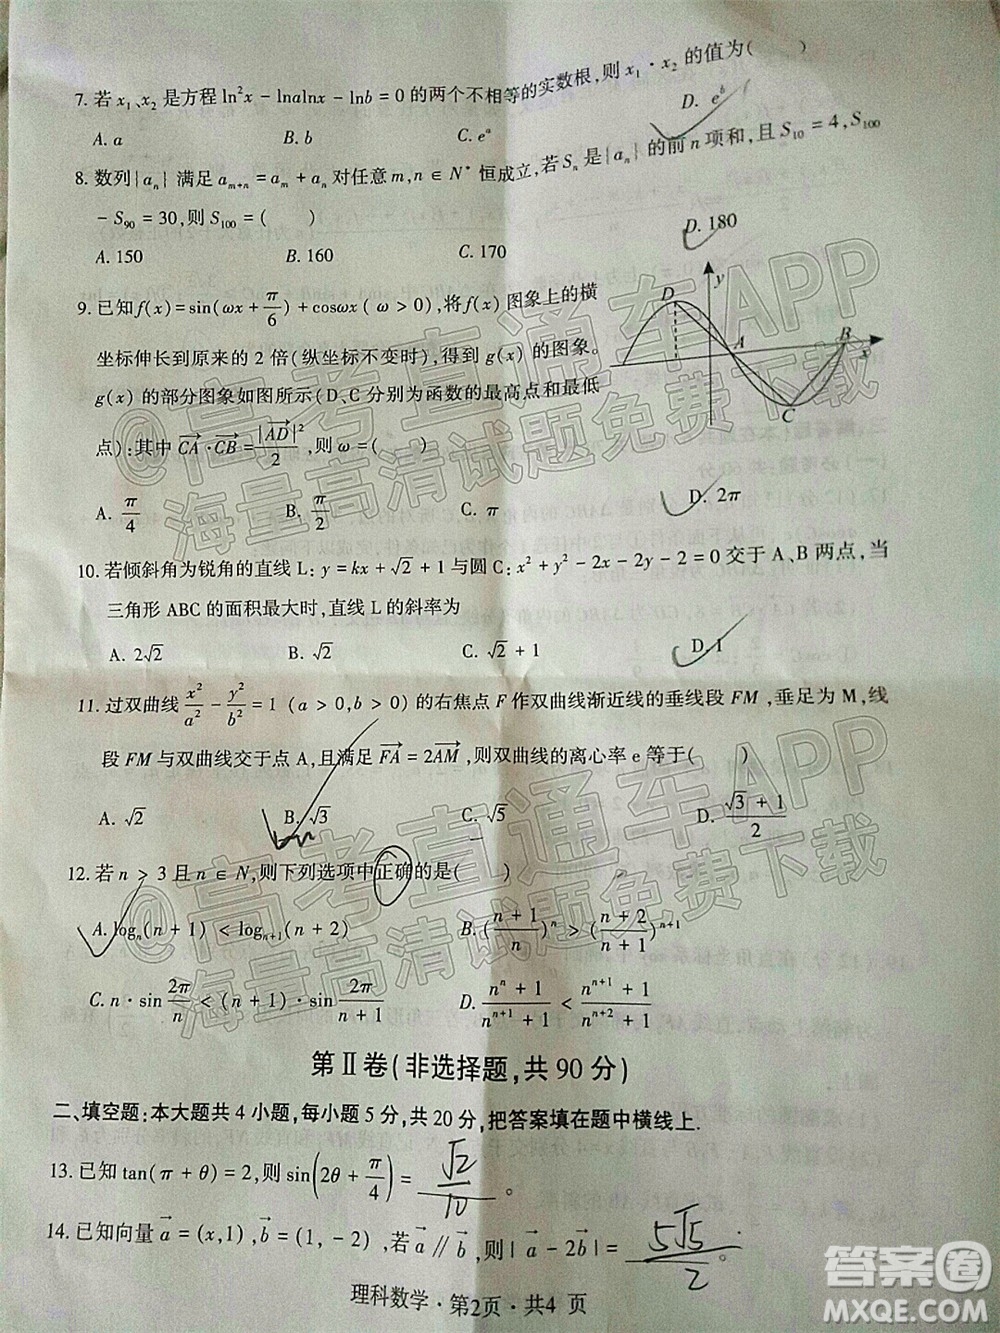 7. 若 x₁、x₂ 是方程 ln²x - lnalnx - lnb = 0 的两个不相等的实数根,则 x₁·x₂ 的值为( )
A. a B. b C. eᵃ D. eᵇ
8. 数列{aₙ}满足 aₘ₊ₙ = aₘ + aₙ 对任意 m,n∈N* 恒成立,若 Sₙ 是{aₙ}的前 n 项和,且 S₁₀ = 4, S₁₀₀
- S₉₀ = 30,则 S₁₀₀ = ( )
A. 150 B. 160 C. 170 D. 180
9. 已知 f(x) = sin(ωx + π/6) + cosωx (ω > 0),将 f(x) 图象上的横
坐标伸长到原来的 2 倍(纵坐标不变时),得到 g(x) 的图象。
g(x) 的部分图象如图所示(D、C 分别为函数的最高点和最低
点):其中 CA⃗·CB⃗ = |AD⃗|²/2 ,则 ω = ( )
y D A B x C
A. π/4 B. π/2 C. π D. 2π
10. 若倾斜角为锐角的直线 L: y = kx + √2 + 1 与圆 C: x² + y² - 2x - 2y - 2 = 0 交于 A、B 两点,当
三角形 ABC 的面积最大时,直线 L 的斜率为
A. 2√2 B. √2 C. √2 + 1 D. 1
11. 过双曲线 x²/a² - y²/b² = 1 (a > 0, b > 0) 的右焦点 F 作双曲线渐近线的垂线段 FM,垂足为 M,线
段 FM 与双曲线交于点 A,且满足 FA⃗ = 2AM⃗ ,则双曲线的离心率 e 等于( )
A. √2 B. √3 C. √5 D. (√3 + 1)/2
12. 若 n > 3 且 n∈N,则下列选项中正确的是( )
A. logₙ(n + 1) < logₙ₊₁(n + 2) B. ((n + 1)/n)ⁿ > ((n + 2)/(n + 1))ⁿ⁺¹
C. n·sin 2π/n < (n + 1)·sin 2π/(n + 1) D. (nⁿ + 1)/(nⁿ⁺¹ + 1) < (nⁿ⁺¹ + 1)/(nⁿ⁺² + 1)
第Ⅱ卷(非选择题,共 90 分)
二、填空题:本大题共 4 小题,每小题 5 分,共 20 分,把答案填在题中横线上.
13. 已知 tan(π + θ) = 2,则 sin(2θ + π/4) = √2/10 。
14. 已知向量 a⃗ = (x,1), b⃗ = (1, -2) ,若 a⃗ ∥ b⃗ ,则| a⃗ - 2b⃗ | = 5√5/2 。
理科数学·第2页·共4 页
@高考直通车APP
海量高清试题免费下载
@高考直通车APP
海量高清试题免费下载
答案圈
MXQE.COM